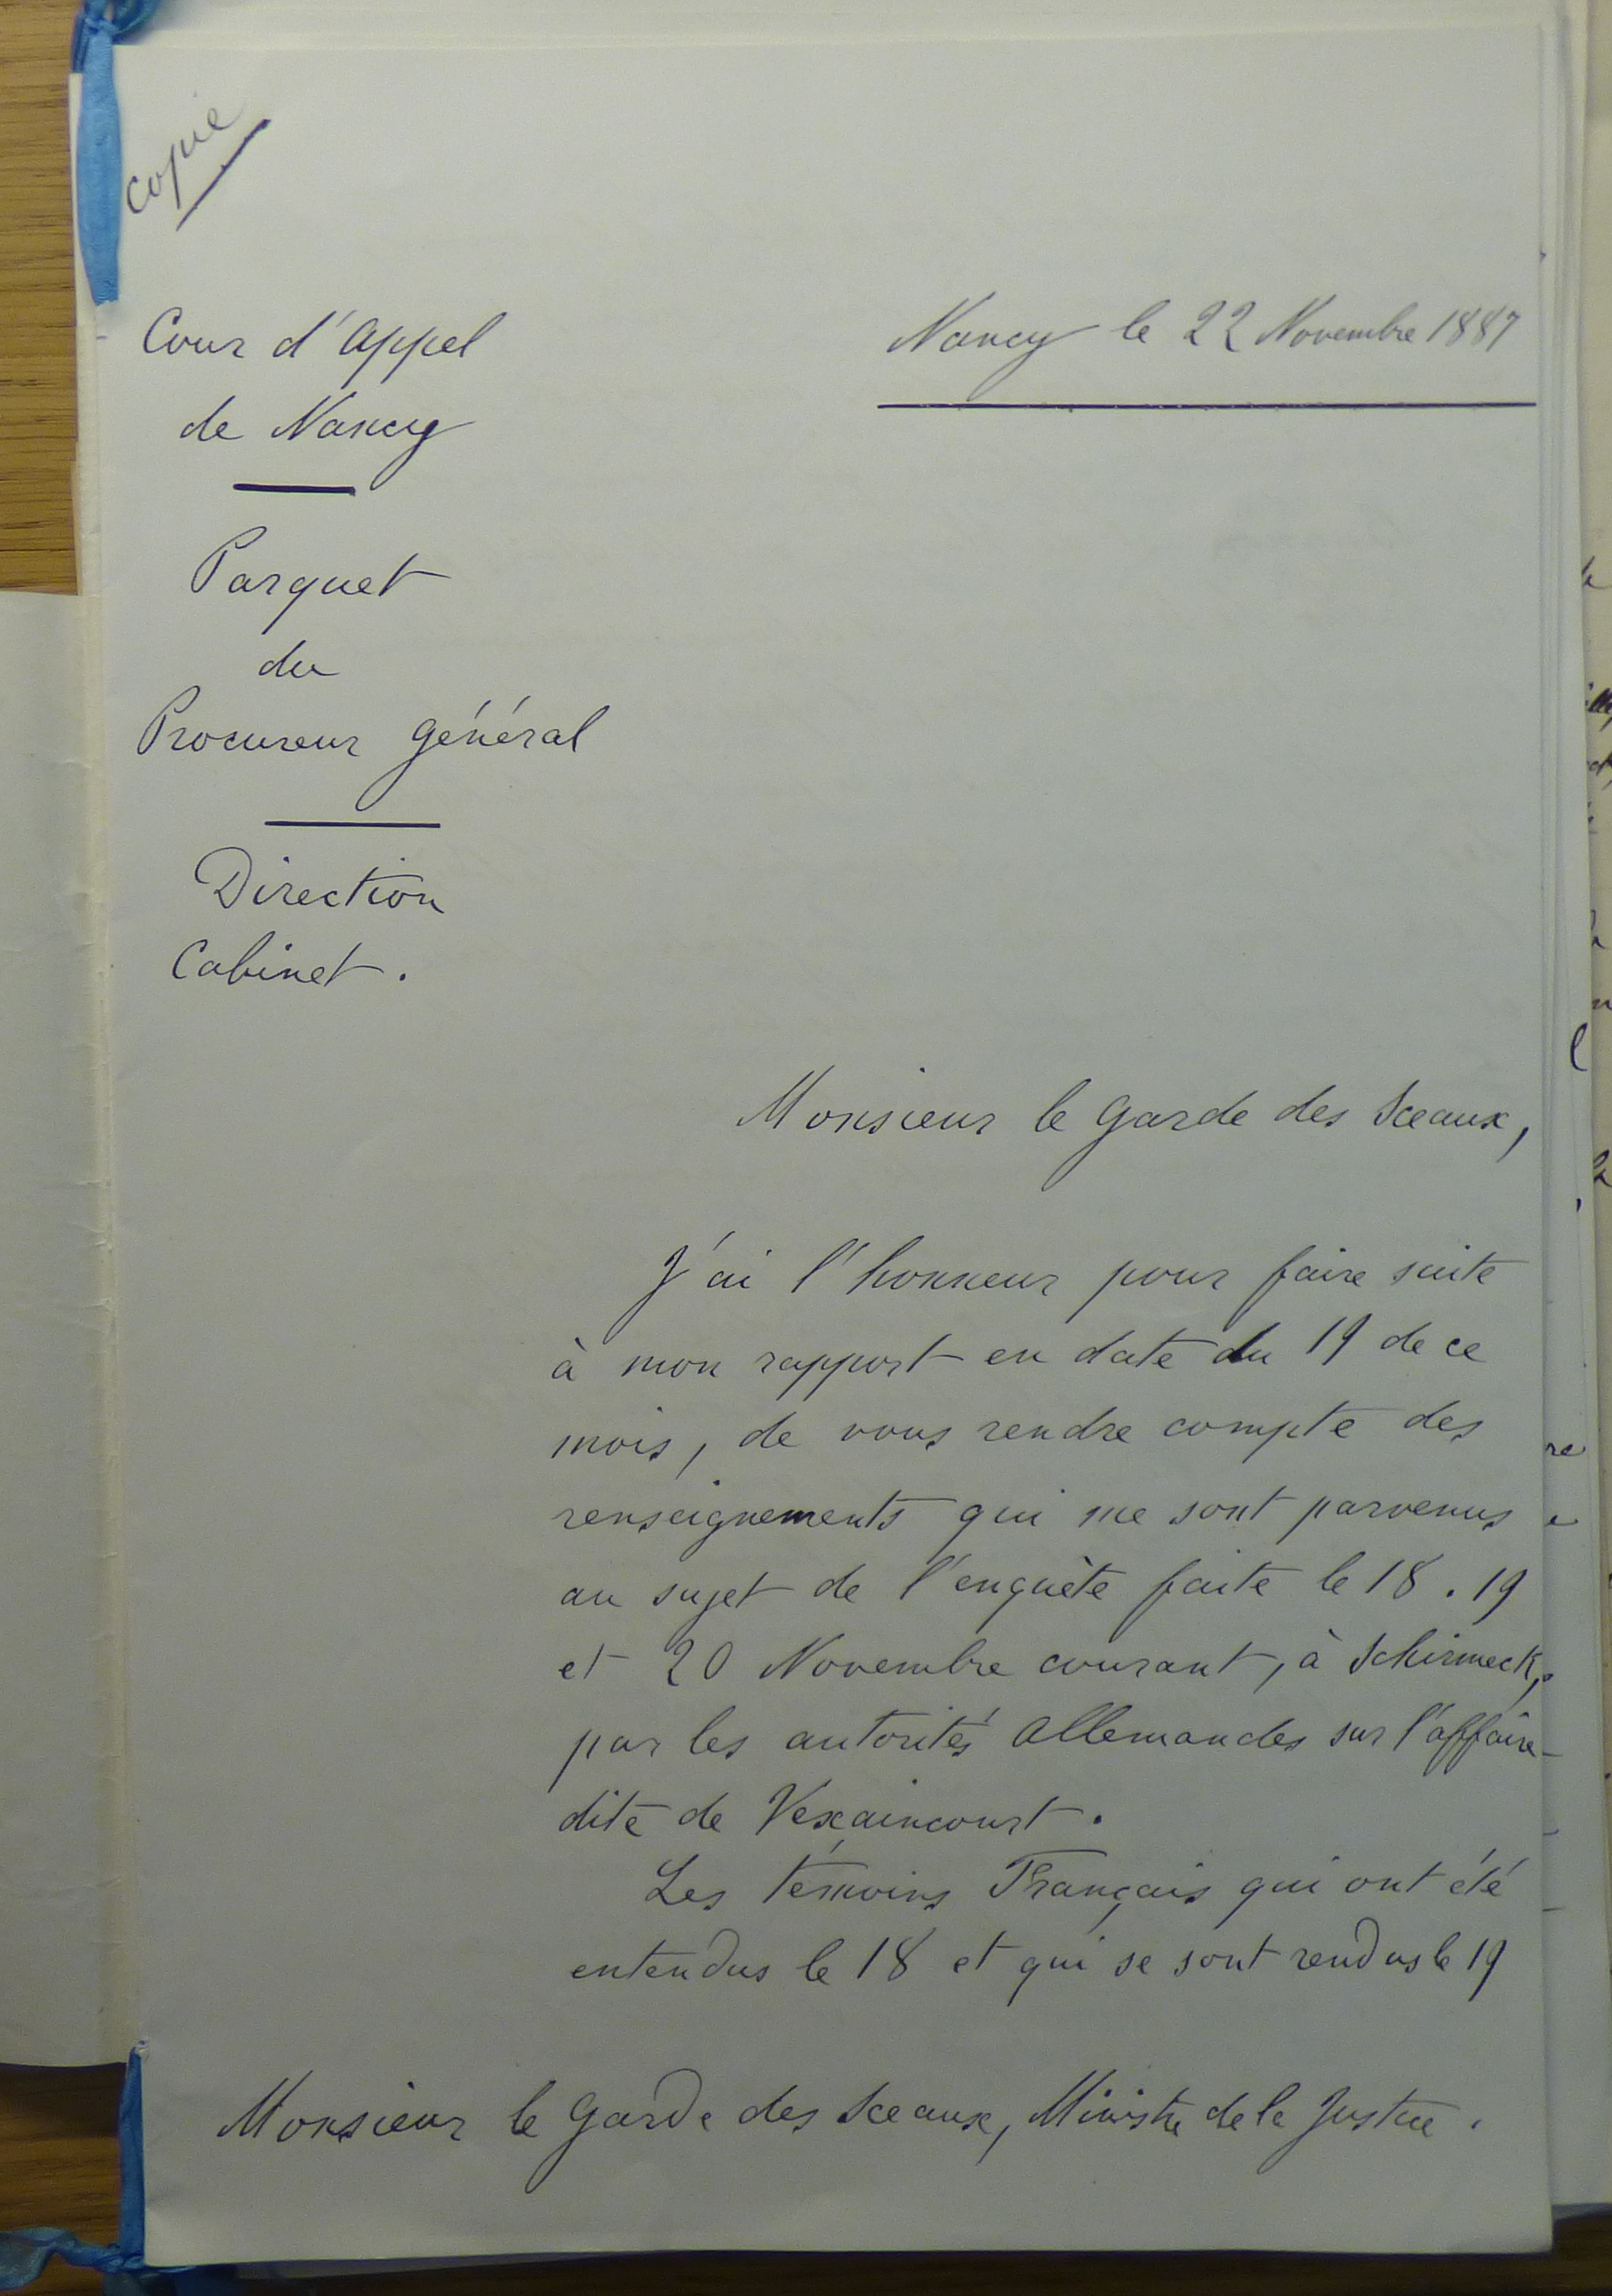 Copie
Cour d'Appel
de Nancy
Nancy le 22 Novembre 1887
Parquet
du
Procureur Général
Direction
Cabinet.
Monsieur le Garde des Sceaux,
J'ai l'honneur pour faire suite
à mon rapport en date du 19 de ce
mois, de vous rendre compte des
renseignements qui me sont parvenus
au sujet de l'enquête faite le 18. 19
et 20 Novembre courant, à Schirmeck,
par les autorités Allemandes sur l'affaire
dite de Vexaincourt.
Les témoins Français qui ont été
entendus le 18 et qui se sont rendus le 19
Monsieur le Garde des Sceaux, Ministre de la Justice.